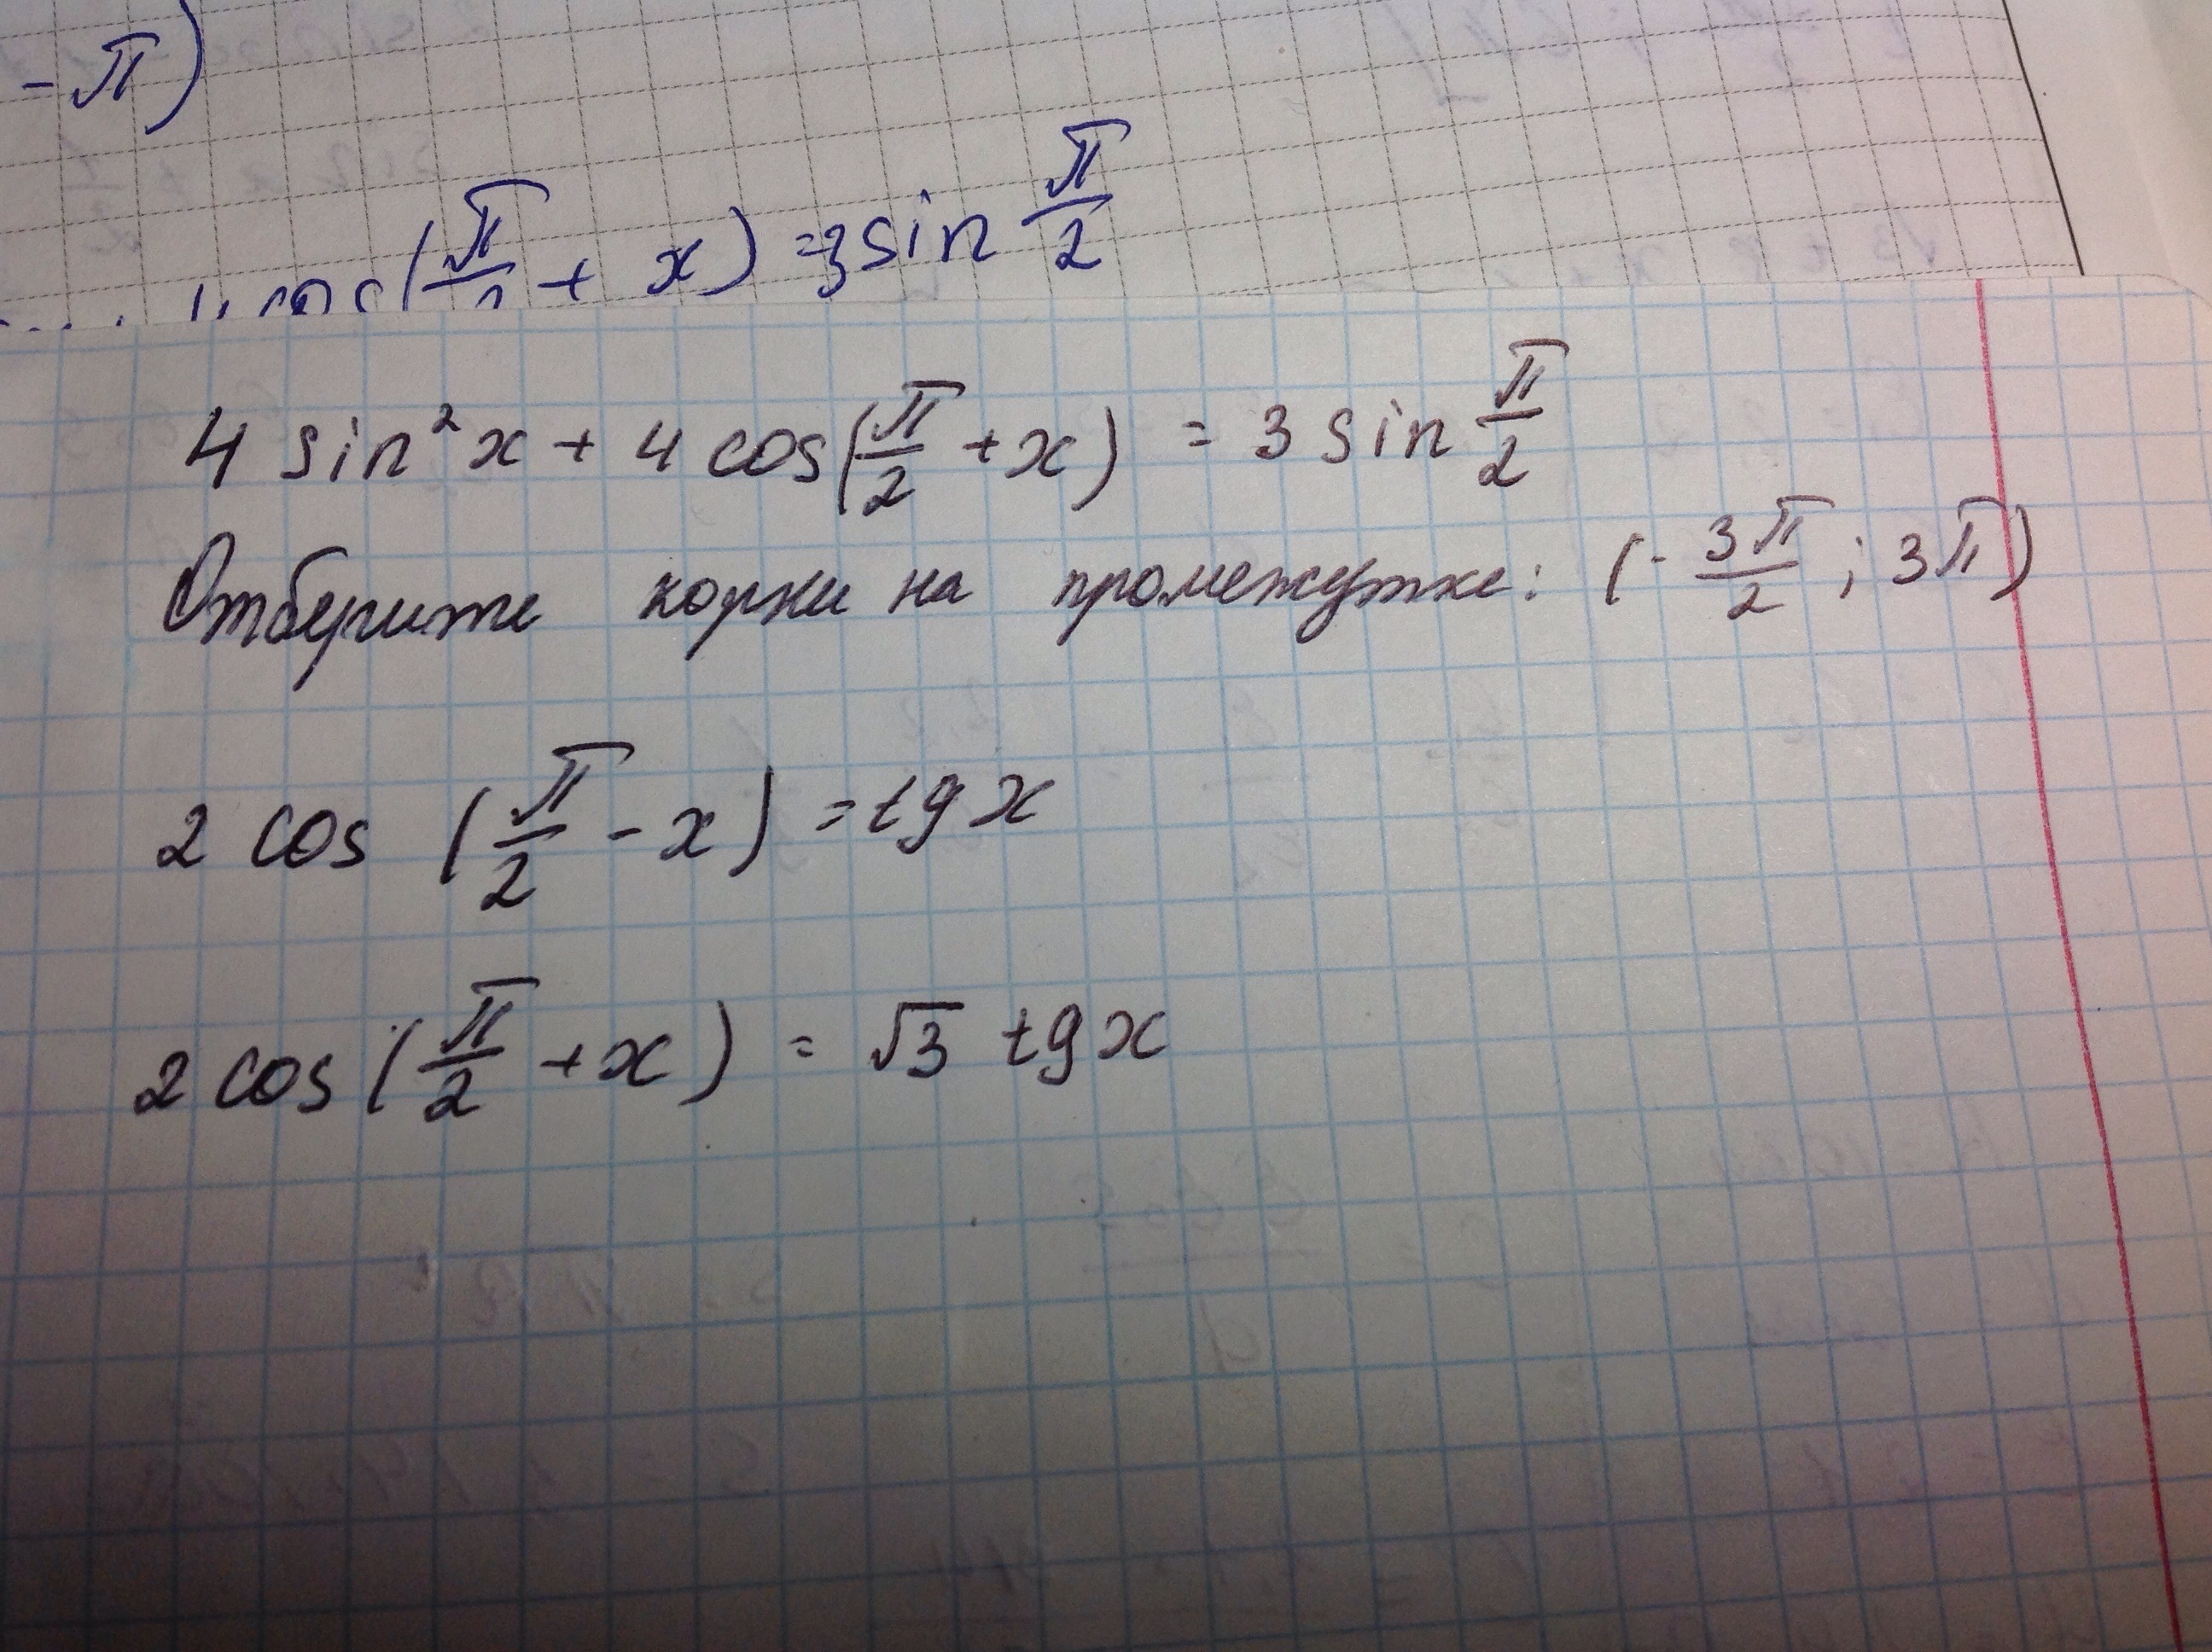 -π)
cos(π/2 + x) = 3 sin π/2
4 sin²x + 4 cos(π/2 + x) = 3 sin π/2
Отберите корни на промежутке: (-3π/2; 3π)
2 cos (π/2 - x) = tg x
2 cos(π/2 + x) = √3 tg x